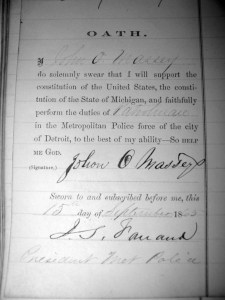 OATH.
I John O
do solemnly swear that I will support the
constitution of the United States, the consti-
tution of the State of Michigan, and faithfully
perform the duties of Patrolman
in the Metropolitan Police force of the city
of Detroit, to the best of my ability—SO HELP
ME GOD.
(Signature.) John O
Sworn to and subscribed before me, this
15th day of September 18
J. S. Farrand
President Met Police